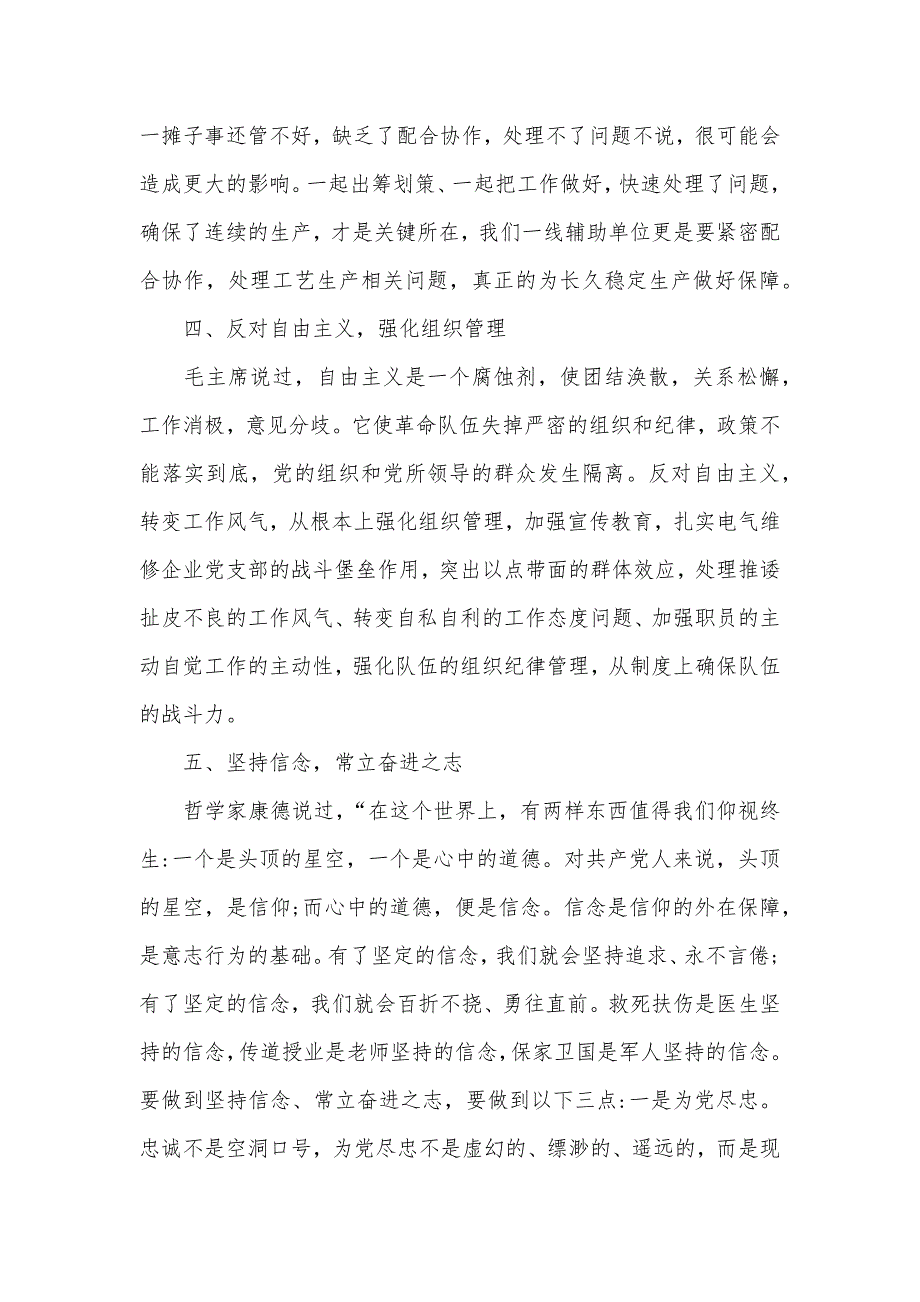 一摊子事还管不好，缺乏了配合协作，处理不了问题不说，很可能会
造成更大的影响。一起出筹划策、一起把工作做好，快速处理了问题，
确保了连续的生产，才是关键所在，我们一线辅助单位更是要紧密配
合协作，处理工艺生产相关问题，真正的为长久稳定生产做好保障。
四、反对自由主义，强化组织管理
毛主席说过，自由主义是一个腐蚀剂，使团结涣散，关系松懈，
工作消极，意见分歧。它使革命队伍失掉严密的组织和纪律，政策不
能落实到底，党的组织和党所领导的群众发生隔离。反对自由主义，
转变工作风气，从根本上强化组织管理，加强宣传教育，扎实电气维
修企业党支部的战斗堡垒作用，突出以点带面的群体效应，处理推诿
扯皮不良的工作风气、转变自私自利的工作态度问题、加强职员的主
动自觉工作的主动性，强化队伍的组织纪律管理，从制度上确保队伍
的战斗力。
五、坚持信念，常立奋进之志
哲学家康德说过，“在这个世界上，有两样东西值得我们仰视终
生:一个是头顶的星空，一个是心中的道德。对共产党人来说，头顶
的星空，是信仰;而心中的道德，便是信念。信念是信仰的外在保障，
是意志行为的基础。有了坚定的信念，我们就会坚持追求、永不言倦;
有了坚定的信念，我们就会百折不挠、勇往直前。救死扶伤是医生坚
持的信念，传道授业是老师坚持的信念，保家卫国是军人坚持的信念。
要做到坚持信念、常立奋进之志，要做到以下三点:一是为党尽忠。
忠诚不是空洞口号，为党尽忠不是虚幻的、缥渺的、遥远的，而是现